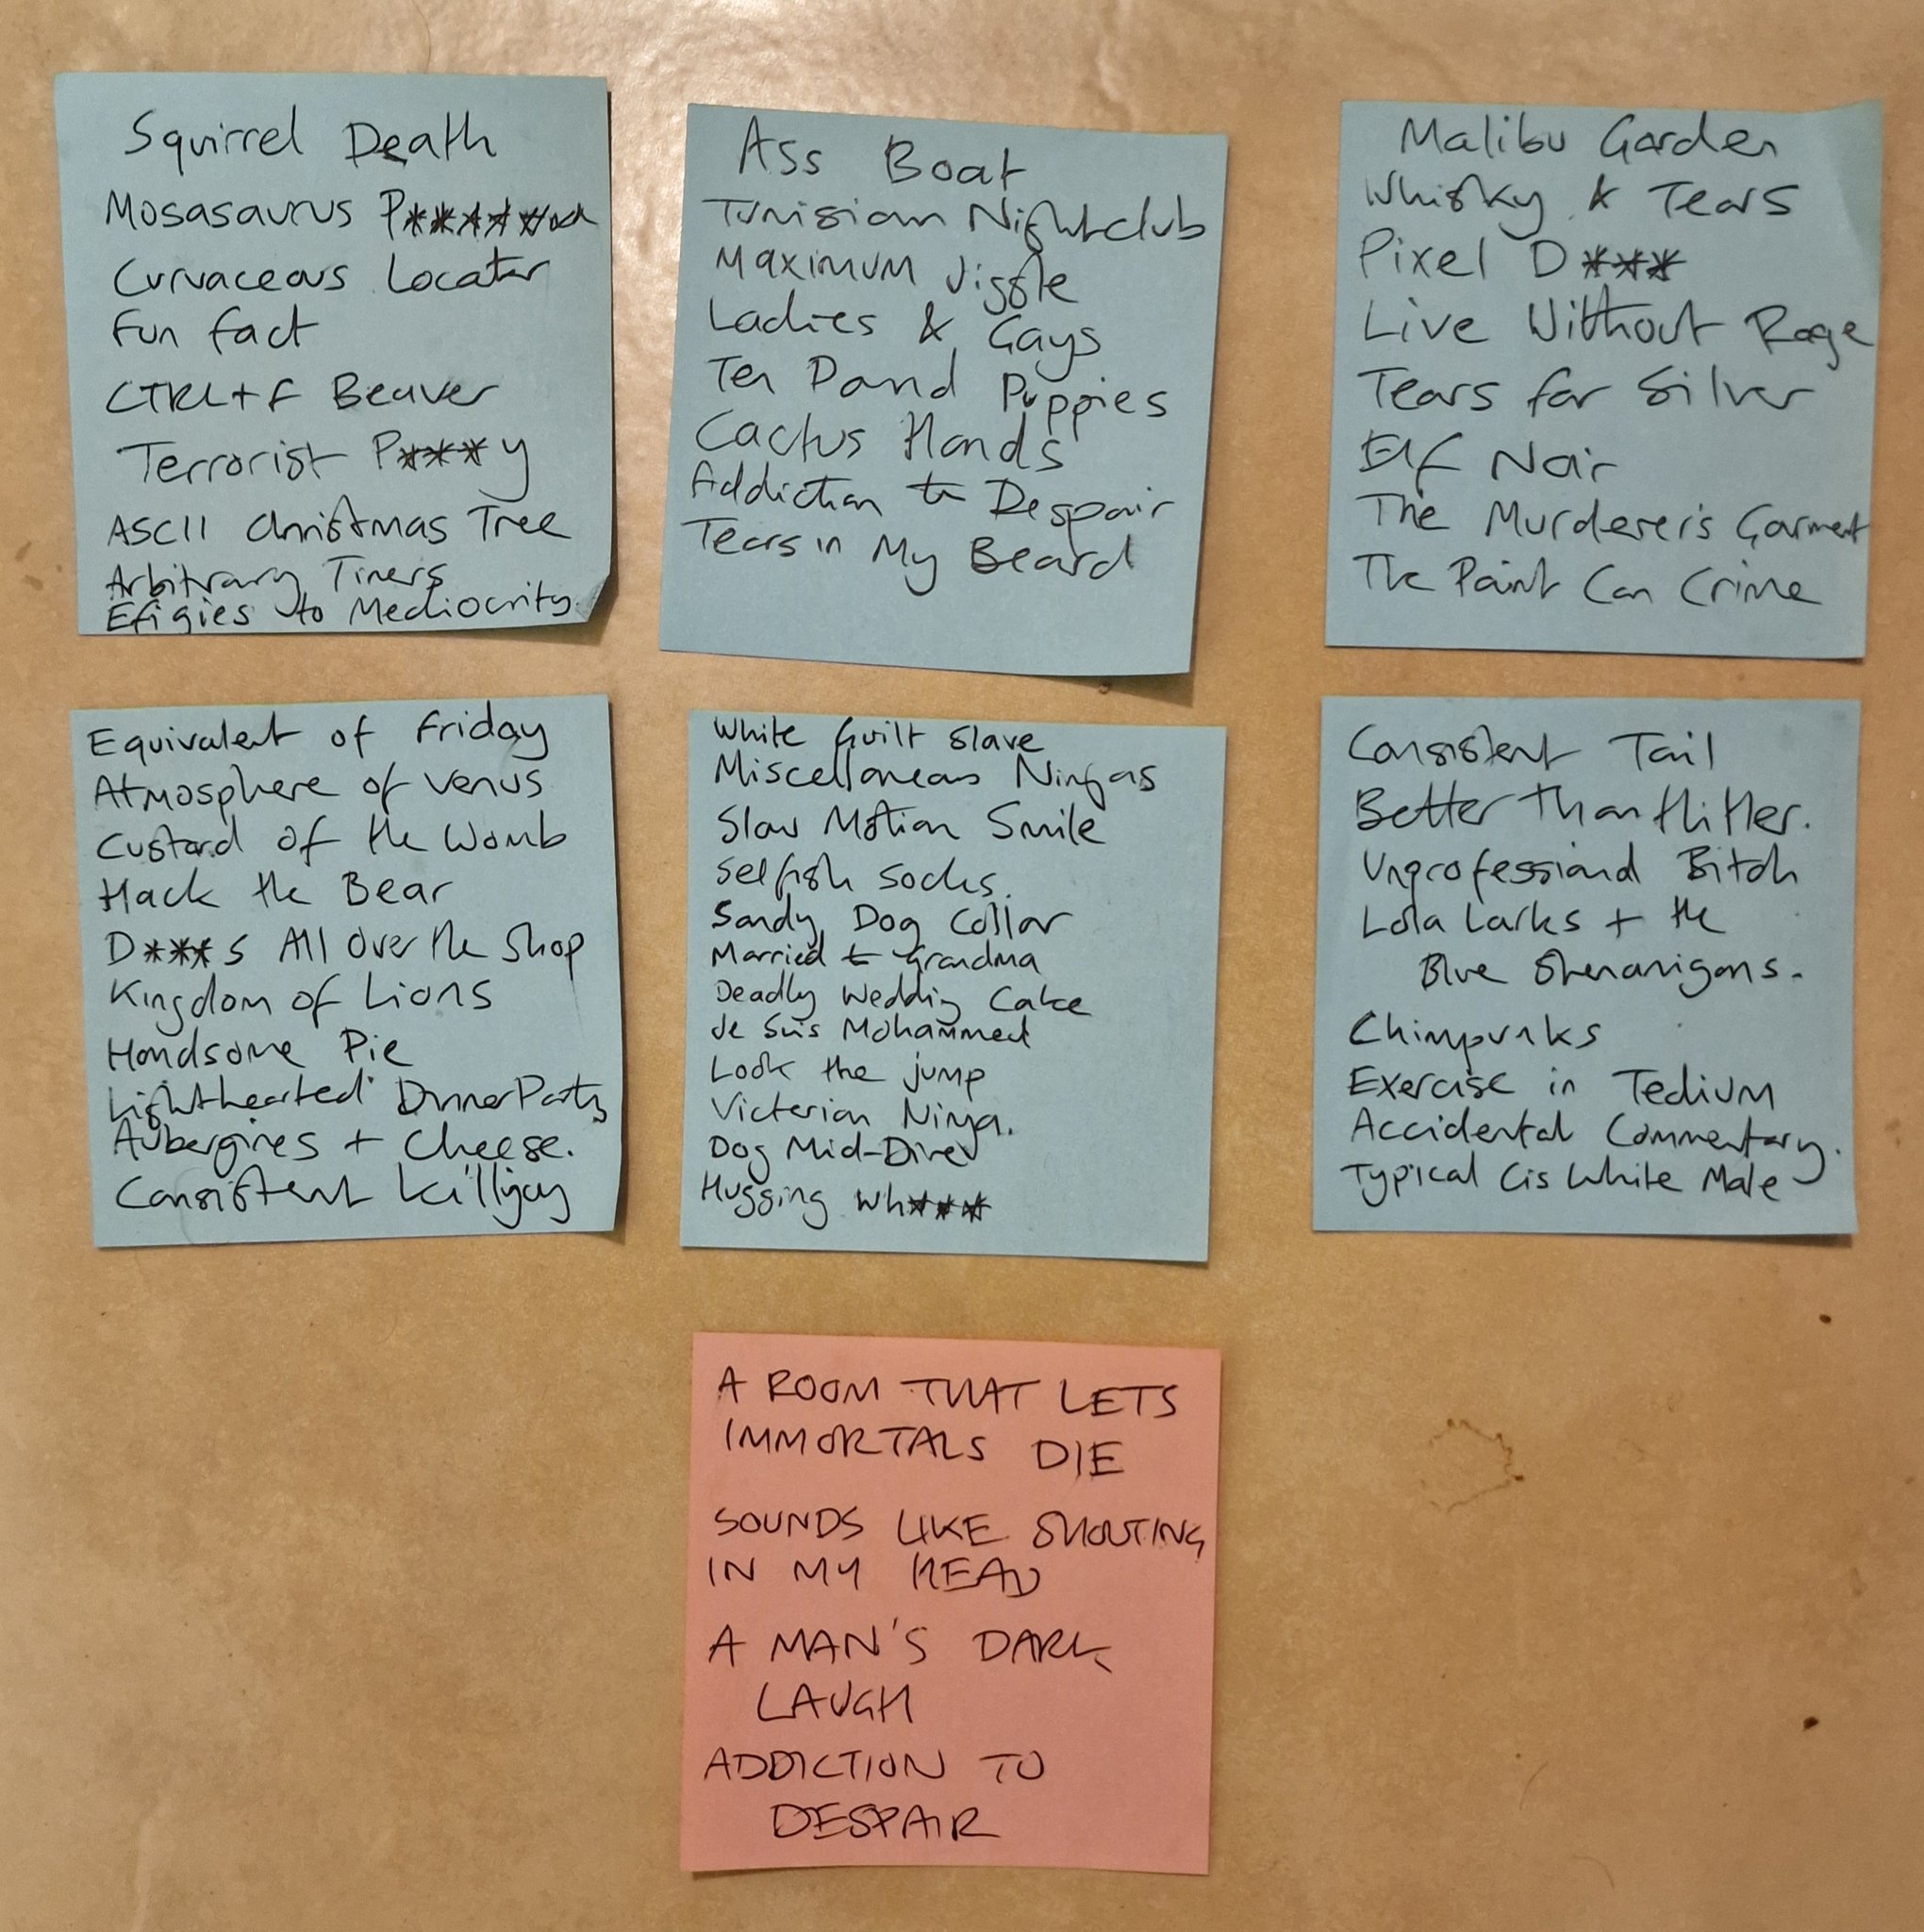 Squirrel Death
Mosasaurus P*****
Curvaceous Locator
Fun Fact
CTRL+F Beaver
Terrorist P***y
ASCII Christmas Tree
Arbitrary Tiners
Efigies to Mediocrity.
Ass Boat
Tunisian Nightclub
Maximum Jiggle
Ladies & Gays
Ten Pound Puppies
Cactus Hands
Addiction to Despair
Tears in My Beard
Malibu Garden
Whisky & Tears
Pixel D***
Live Without Rage
Tears for Silver
Elf Noir
The Murderer's Garment
The Paint Can Crime
Equivalent of Friday
Atmosphere of Venus
Custard of the Womb
Hack the Bear
D***s All Over the Shop
Kingdom of Lions
Handsome Pie
Lighthearted Dinner Party
Aubergines + Cheese.
Consistent Killjoy
White Guilt Slave
Miscellaneous Ninjas
Slow Motion Smile
Selfish Socks.
Sandy Dog Collar
Married to Grandma
Deadly Wedding Cake
Je Suis Mohammed
Look the jump
Victorian Ninja.
Dog Mid-Dive
Hugging Wh***
Consistent Tail
Better Than Hitler.
Unprofessional Bitch
Lola Larks + the
Blue Shenanigans.
Chimpunks
Exercise in Tedium
Accidental Commentary.
Typical Cis White Male
A ROOM THAT LETS
IMMORTALS DIE
SOUNDS LIKE SHOUTING
IN MY HEAD
A MAN'S DARK
LAUGH
ADDICTION TO
DESPAIR